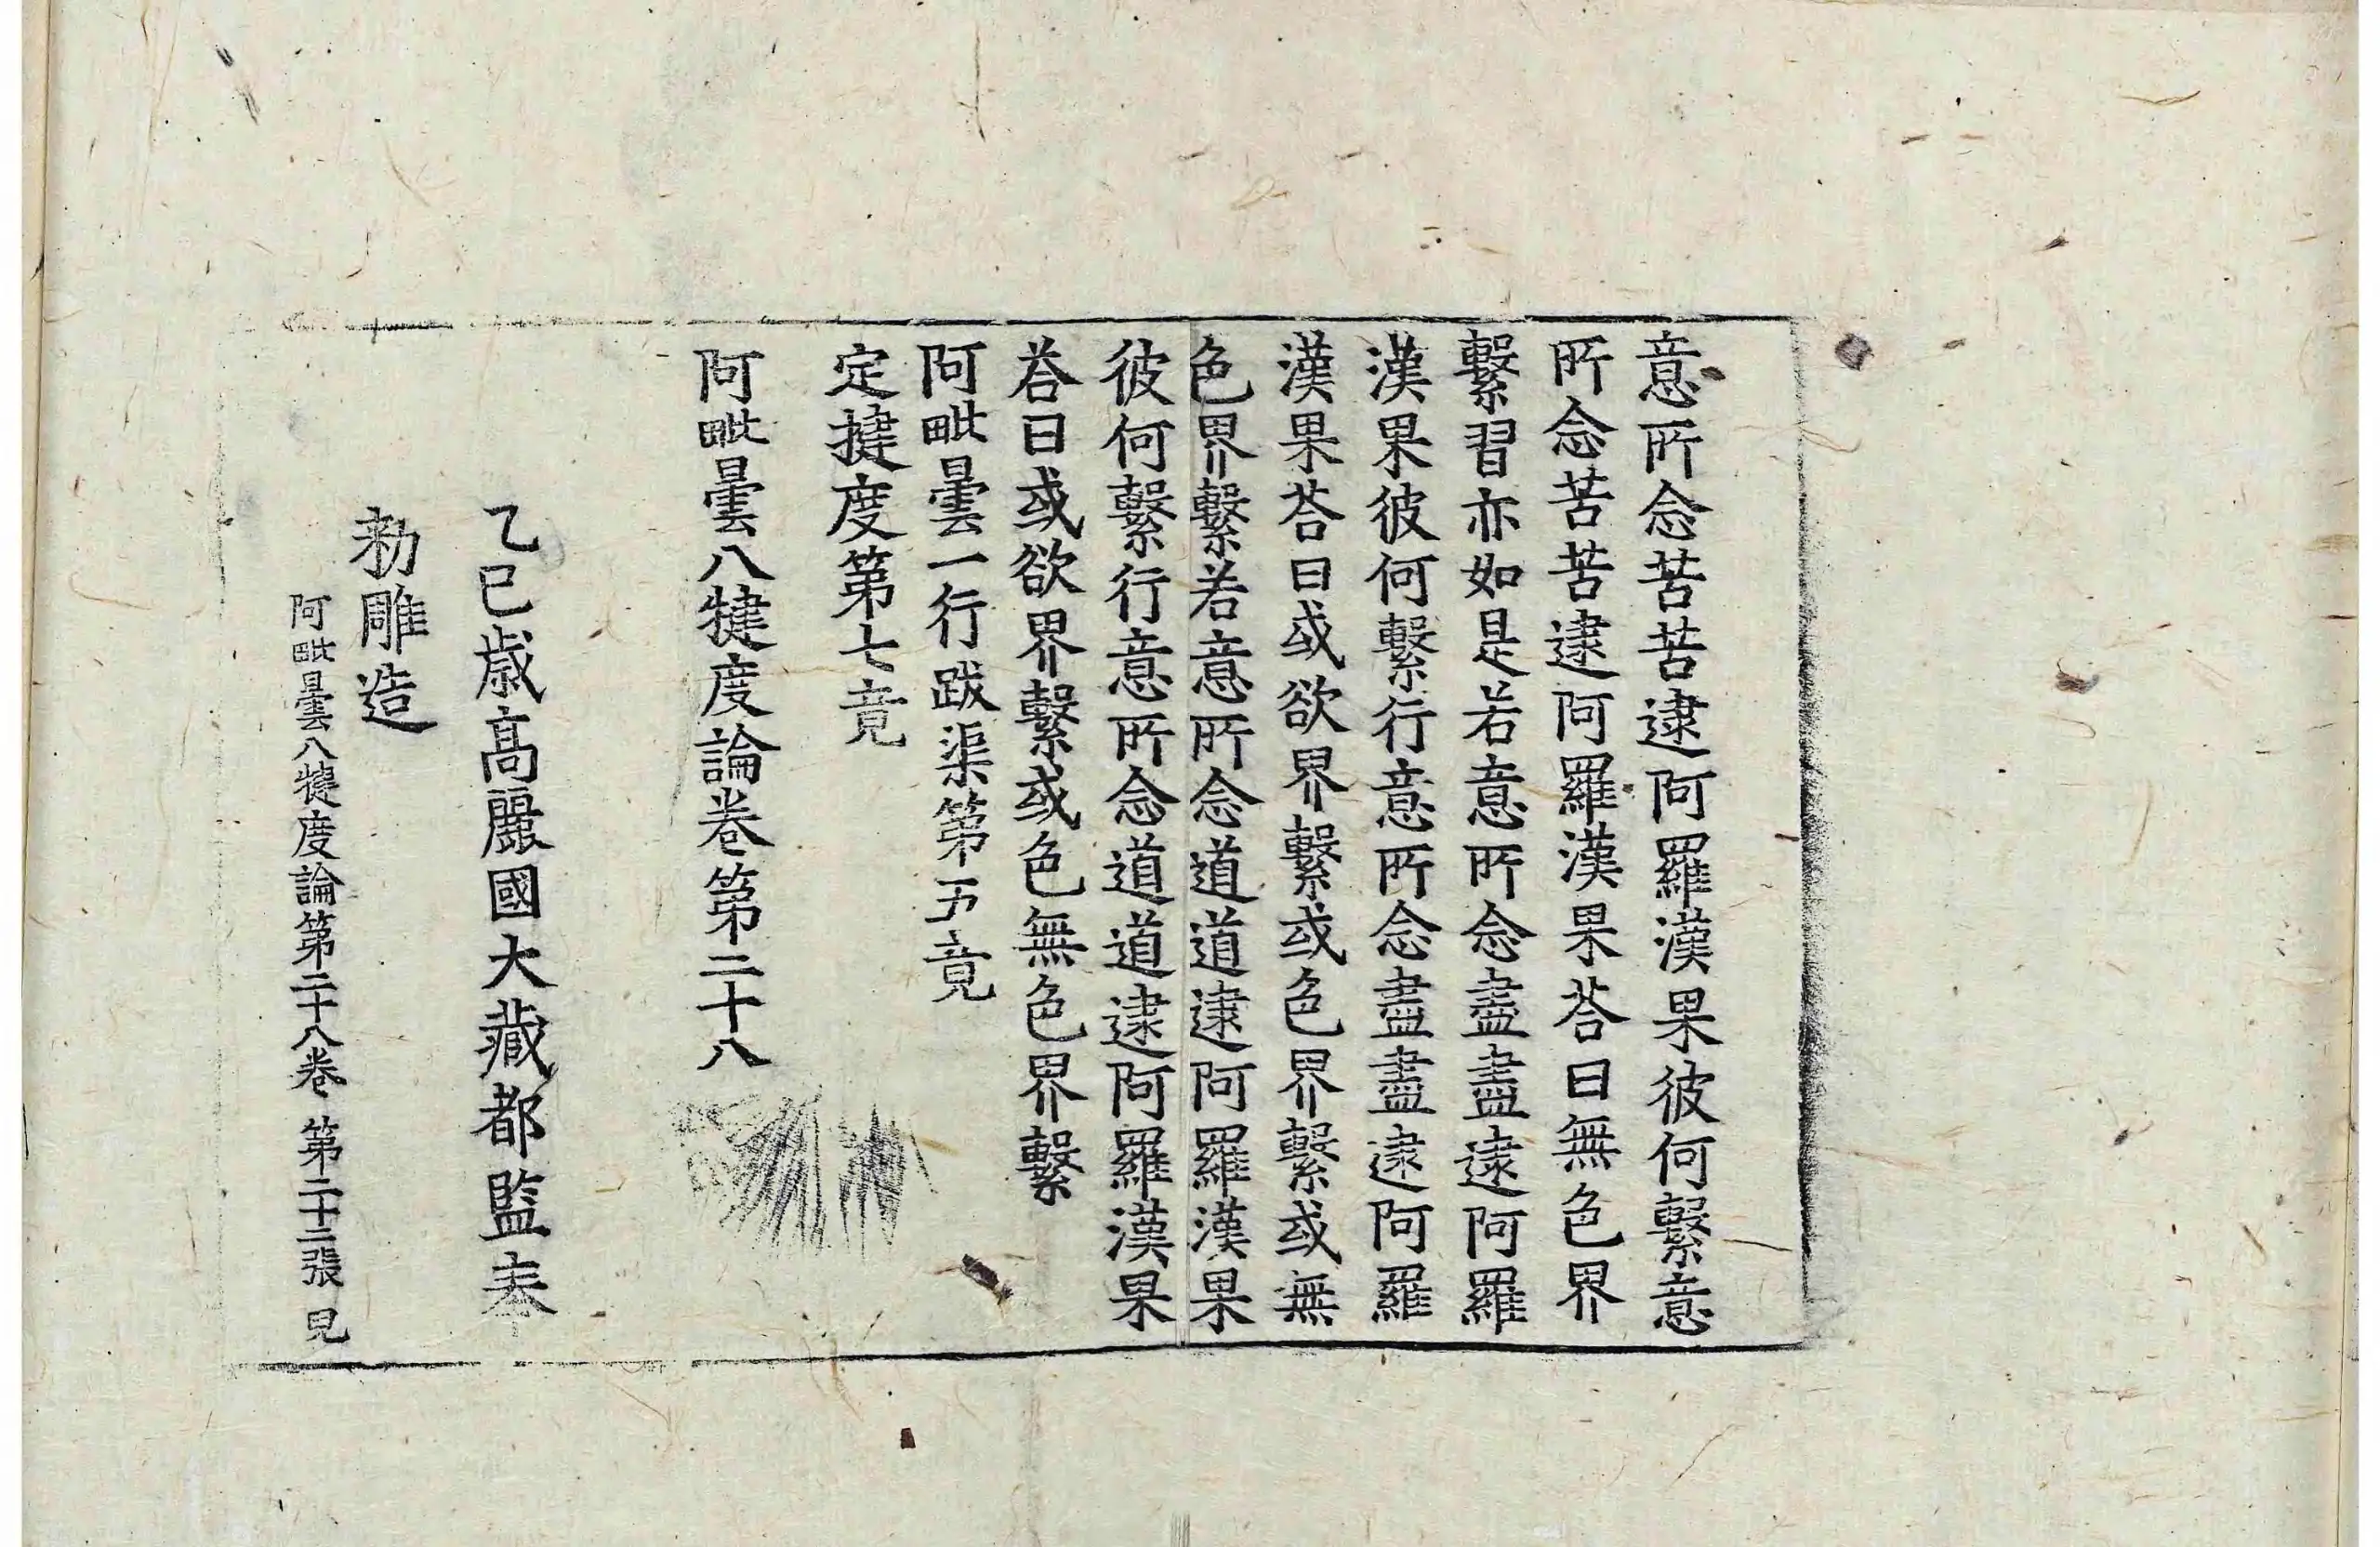 意所念苦苦逮阿羅漢果彼何繫意
所念苦苦逮阿羅漢果荅曰無色界
繫習亦如是若意所念盡盡逮阿羅
漢果彼何繫行意所念盡盡逮阿羅
漢果荅曰或欲界繫或色界繫或無
色界繫若意所念道道逮阿羅漢果
彼何繫行意所念道道逮阿羅漢果
荅曰或欲界繫或色無色界繫
阿毗曇一行跋渠第五竟
定揵度第七竟
阿毗曇八犍度論卷第二十八
乙巳歲高麗國大藏都監奉
勑雕造
阿毗曇八犍度論第二十八卷 第二十二張 見